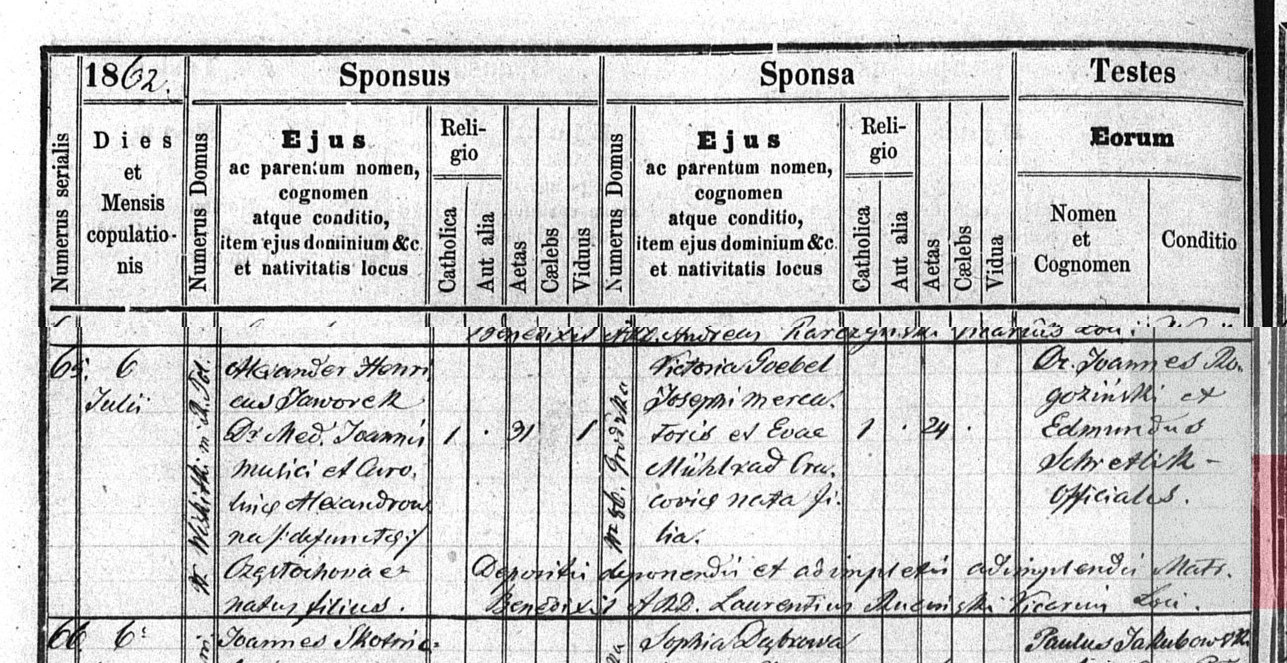 1862.
Sponsus
Sponsa
Testes
Numerus serialis
Dies
et
Mensis
copulatio-
nis
Numerus Domus
Ejus
ac parentum nomen,
cognomen
atque conditio,
item ejus dominium &c.
et nativitatis locus
Reli-
gio
Catholica
Aut alia
Aetas
Cælebs
Viduus
Numerus Domus
Ejus
ac parentum nomen,
cognomen
atque conditio,
item ejus dominium &c.
et nativitatis locus
Reli-
gio
Catholica
Aut alia
Aetas
Cælebs
Vidua
Eorum
Nomen
et
Cognomen
Conditio
Benedixit A.R.D. Andreas Karczyński vicarius Loci
65. 6
Julii
Alexander Henri
cus Jaworek
Dr Med. Joannis
musici et Caro.
linæ
na /: defunctæ :/
Częstochova et
natus filius.
1 . 31 1
Nr 86. Grodzka
Victoria Goebel
Josephi merca.
toris et Evae
Mühlrad Cra.
coviæ nata fi.
lia.
1 . 24 .
Dr. Joannes Ro.
goziński et
Edmundus
Officiales.
Depositis deponendis et adimpletis adimplendis Matr.
Benedixit A.R.D. Laurentius Vicarius Loci.
66 6
Joannes
Sophia Dąbrowa
Paulus Jakubowski